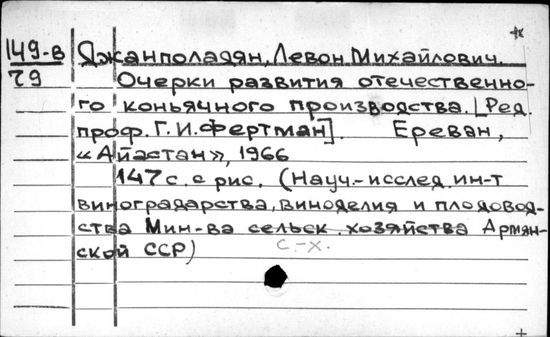 149-в Джанполадян, Левон Михайлович.
79 Очерки развития отечественно-
го коньячного производства. [Ред.
проф. Г. И. Фертман]. Ереван,
«Айастан», 1966
147 с. с рис. (Науч.-исслед. ин-т
виноградарства, виноделия и плодовод-
ства Мин-ва сельск. хозяйства Армян-
ской ССР)
с.-х.